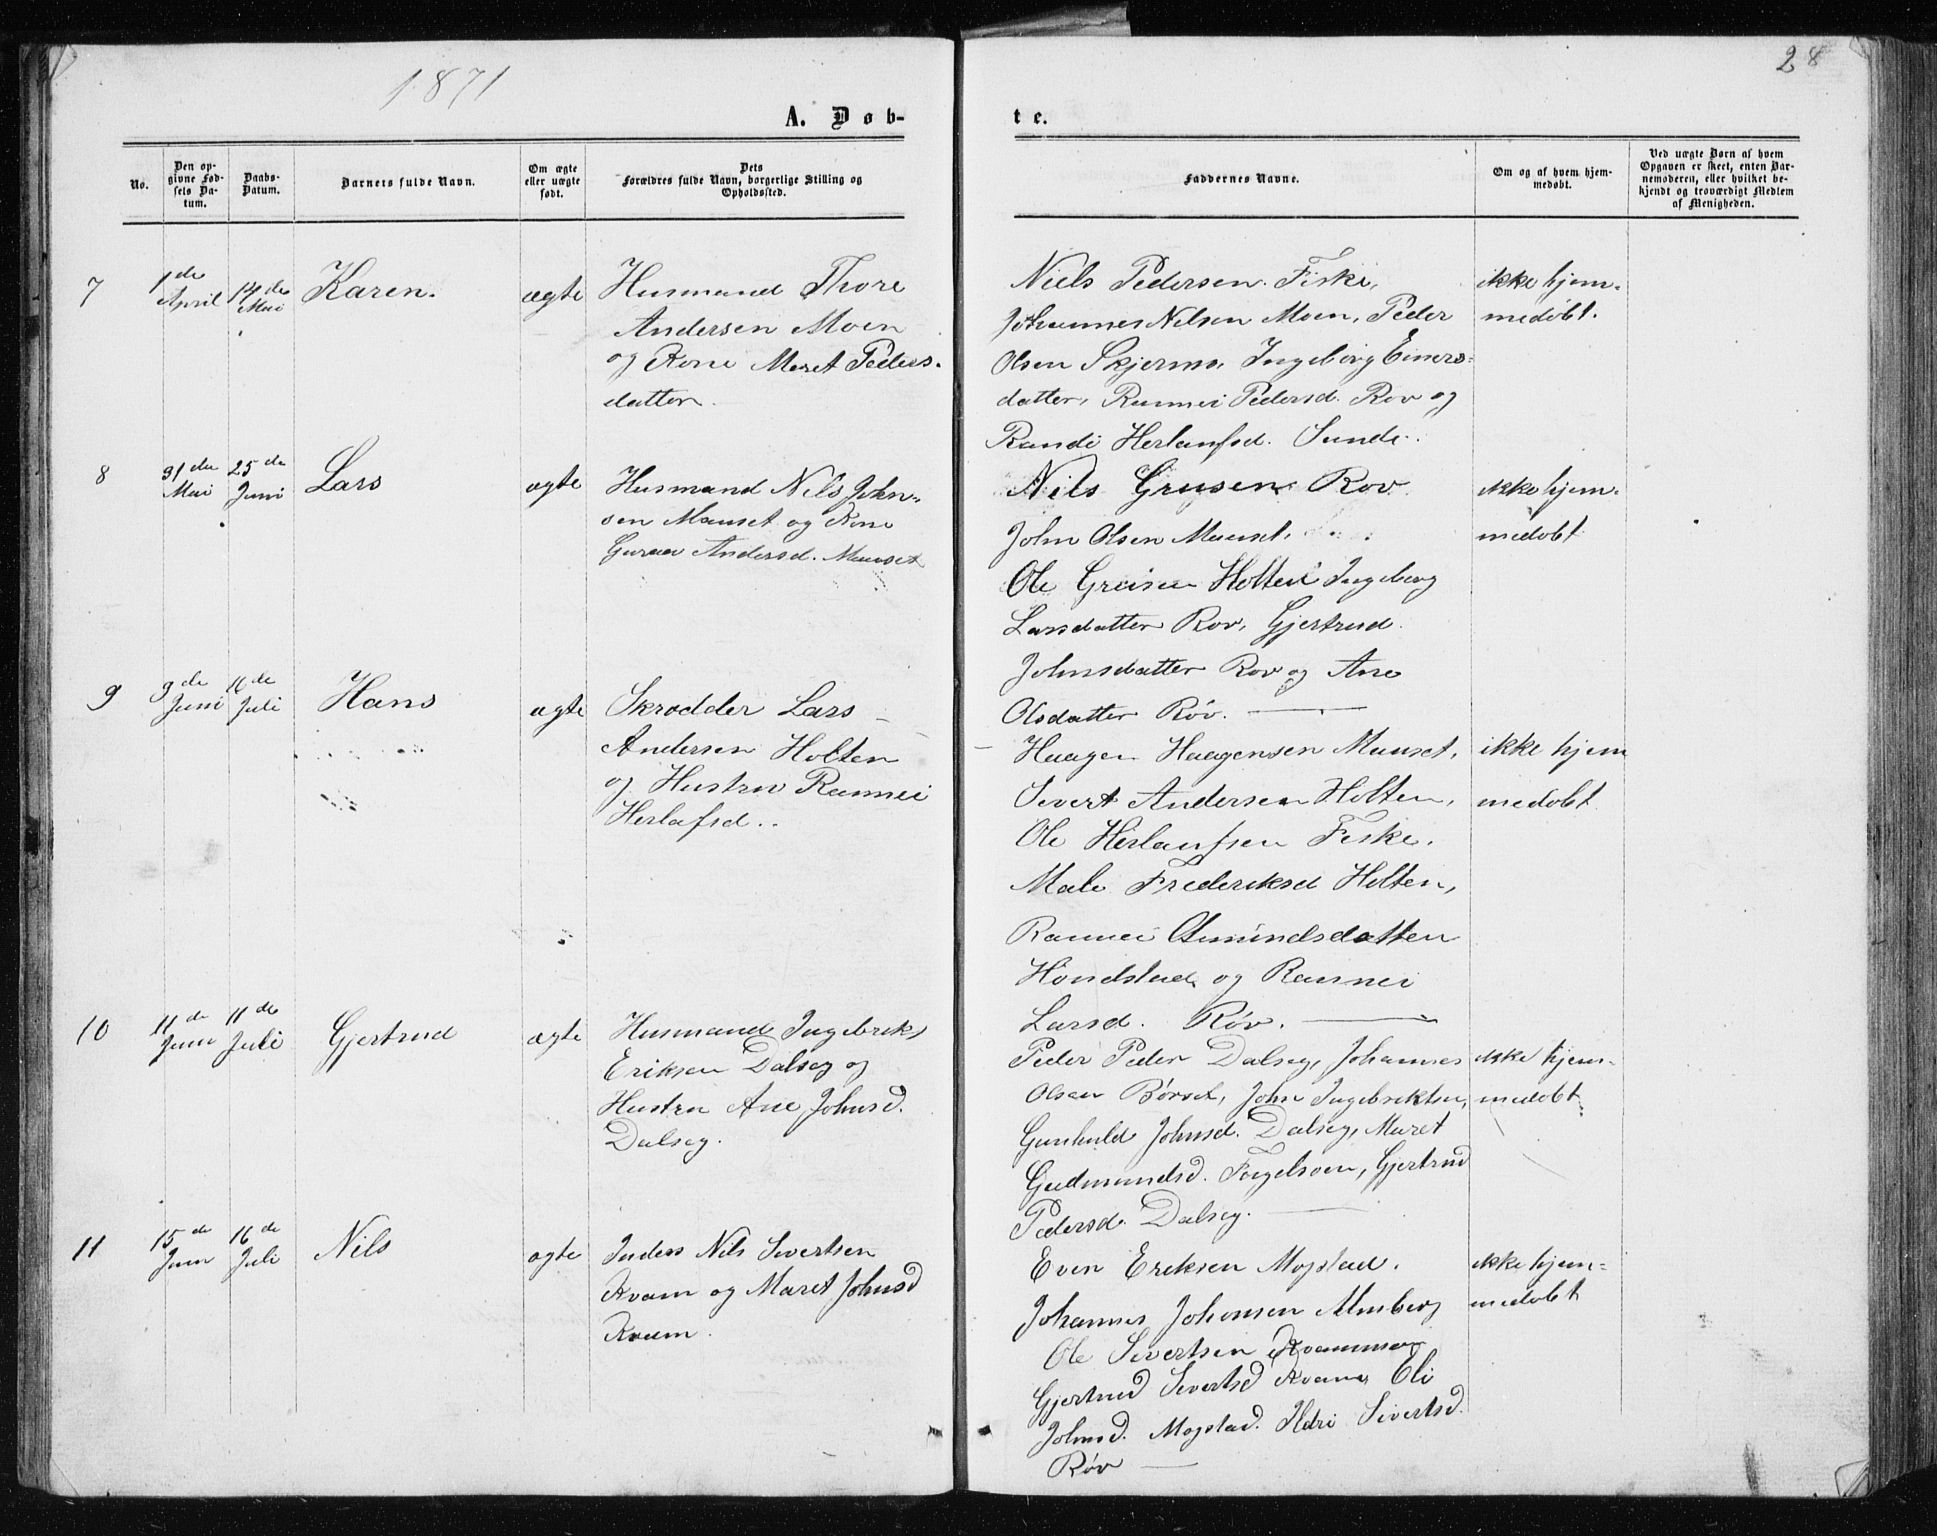 1871
28
A. Døb-
te.
No.
Den op-
givne Fød-
sels Da-
tum.
Daabs-
Datum.
Barnets fulde Navn.
Om ægte
eller uægte
født.
Dets
Forældres fulde Navn, borgerlige Stilling og
Opholdssted.
Faddernes Navne.
Om og af hvem hjem-
medøbt.
Ved uægte Børn af hvem
Opgaven er skeet, enten Bar-
nemoderen, eller hvilket be-
kjendt og troværdigt Medlem
af Menigheden.
7
1de
April
14de
Mai
Karen.
ægte
Husmand Thore
Andersen Moen
og Kone Maret Peders-
datter.
Niels Pedersen Fiske,
Johannes Nilsen Moen, Peder
Olsen Skjermo, Ingeborg Einers-
datter, Rannei Pedersd. Rov og
Randi Herlaufsd. Sunde.
ikke hjem-
medøbt.
8
31de
Mai
25de
Juni
Lars
ægte
Husmand Nils John-
sen Mauset og Kone
Guraa Andersd. Mauset
Nils Grusen Rov
John Olsen Mauset,
Ole Greisen Holten Ingeborg
Larsdatter Rov, Gjertrud
Johnsdatter Rov og Ane
Olsdatter Røv.
ikke hjem-
medøbt
9
9de
Juni
16de
Juli
Hans
ægte
Skrædder Lars
Andersen Holten
og Hustru Rannei
Herlafsd..
Haagen Haagensen Mauset,
Sivert Andersen Holten,
Ole Herlaufsen Fiske,
Male Frederiksd Holten,
Rannei Amundsdatter
Hondstad og Rannei
Larsd. Røv.
ikke hjem
medøbt
10
11de
Juni
11de
Juli
Gjertrud
ægte
Husmand Ingebrik,
Eriksen Dalseg og
Hustru Ane Johnsd.
Dalseg.
Peder Peder Dalseg, Johannes
Olsen Børset, John Ingebrikten,
Gunhuld Johnsd. Dalseg, Maret
Gudmundsd. Fugelsoen, Gjertrud
Pedersd. Dalseg.
ikke hjem-
medøbt
11
15de
Juni
16de
Juli
Nils
ægte
Inders Nils Sivertsen
Kvam og Maret Johnsd
Kvam.
Even Eriksen Mogstad.
Johannes Johansen Almberg
Ole Sivertsen Kvammen
Gjertrud Sivertsd Kvam, Eli
Johnsd. Mogstad. Ildri Sivertsd.
Røv
ikke hjem-
medøbt